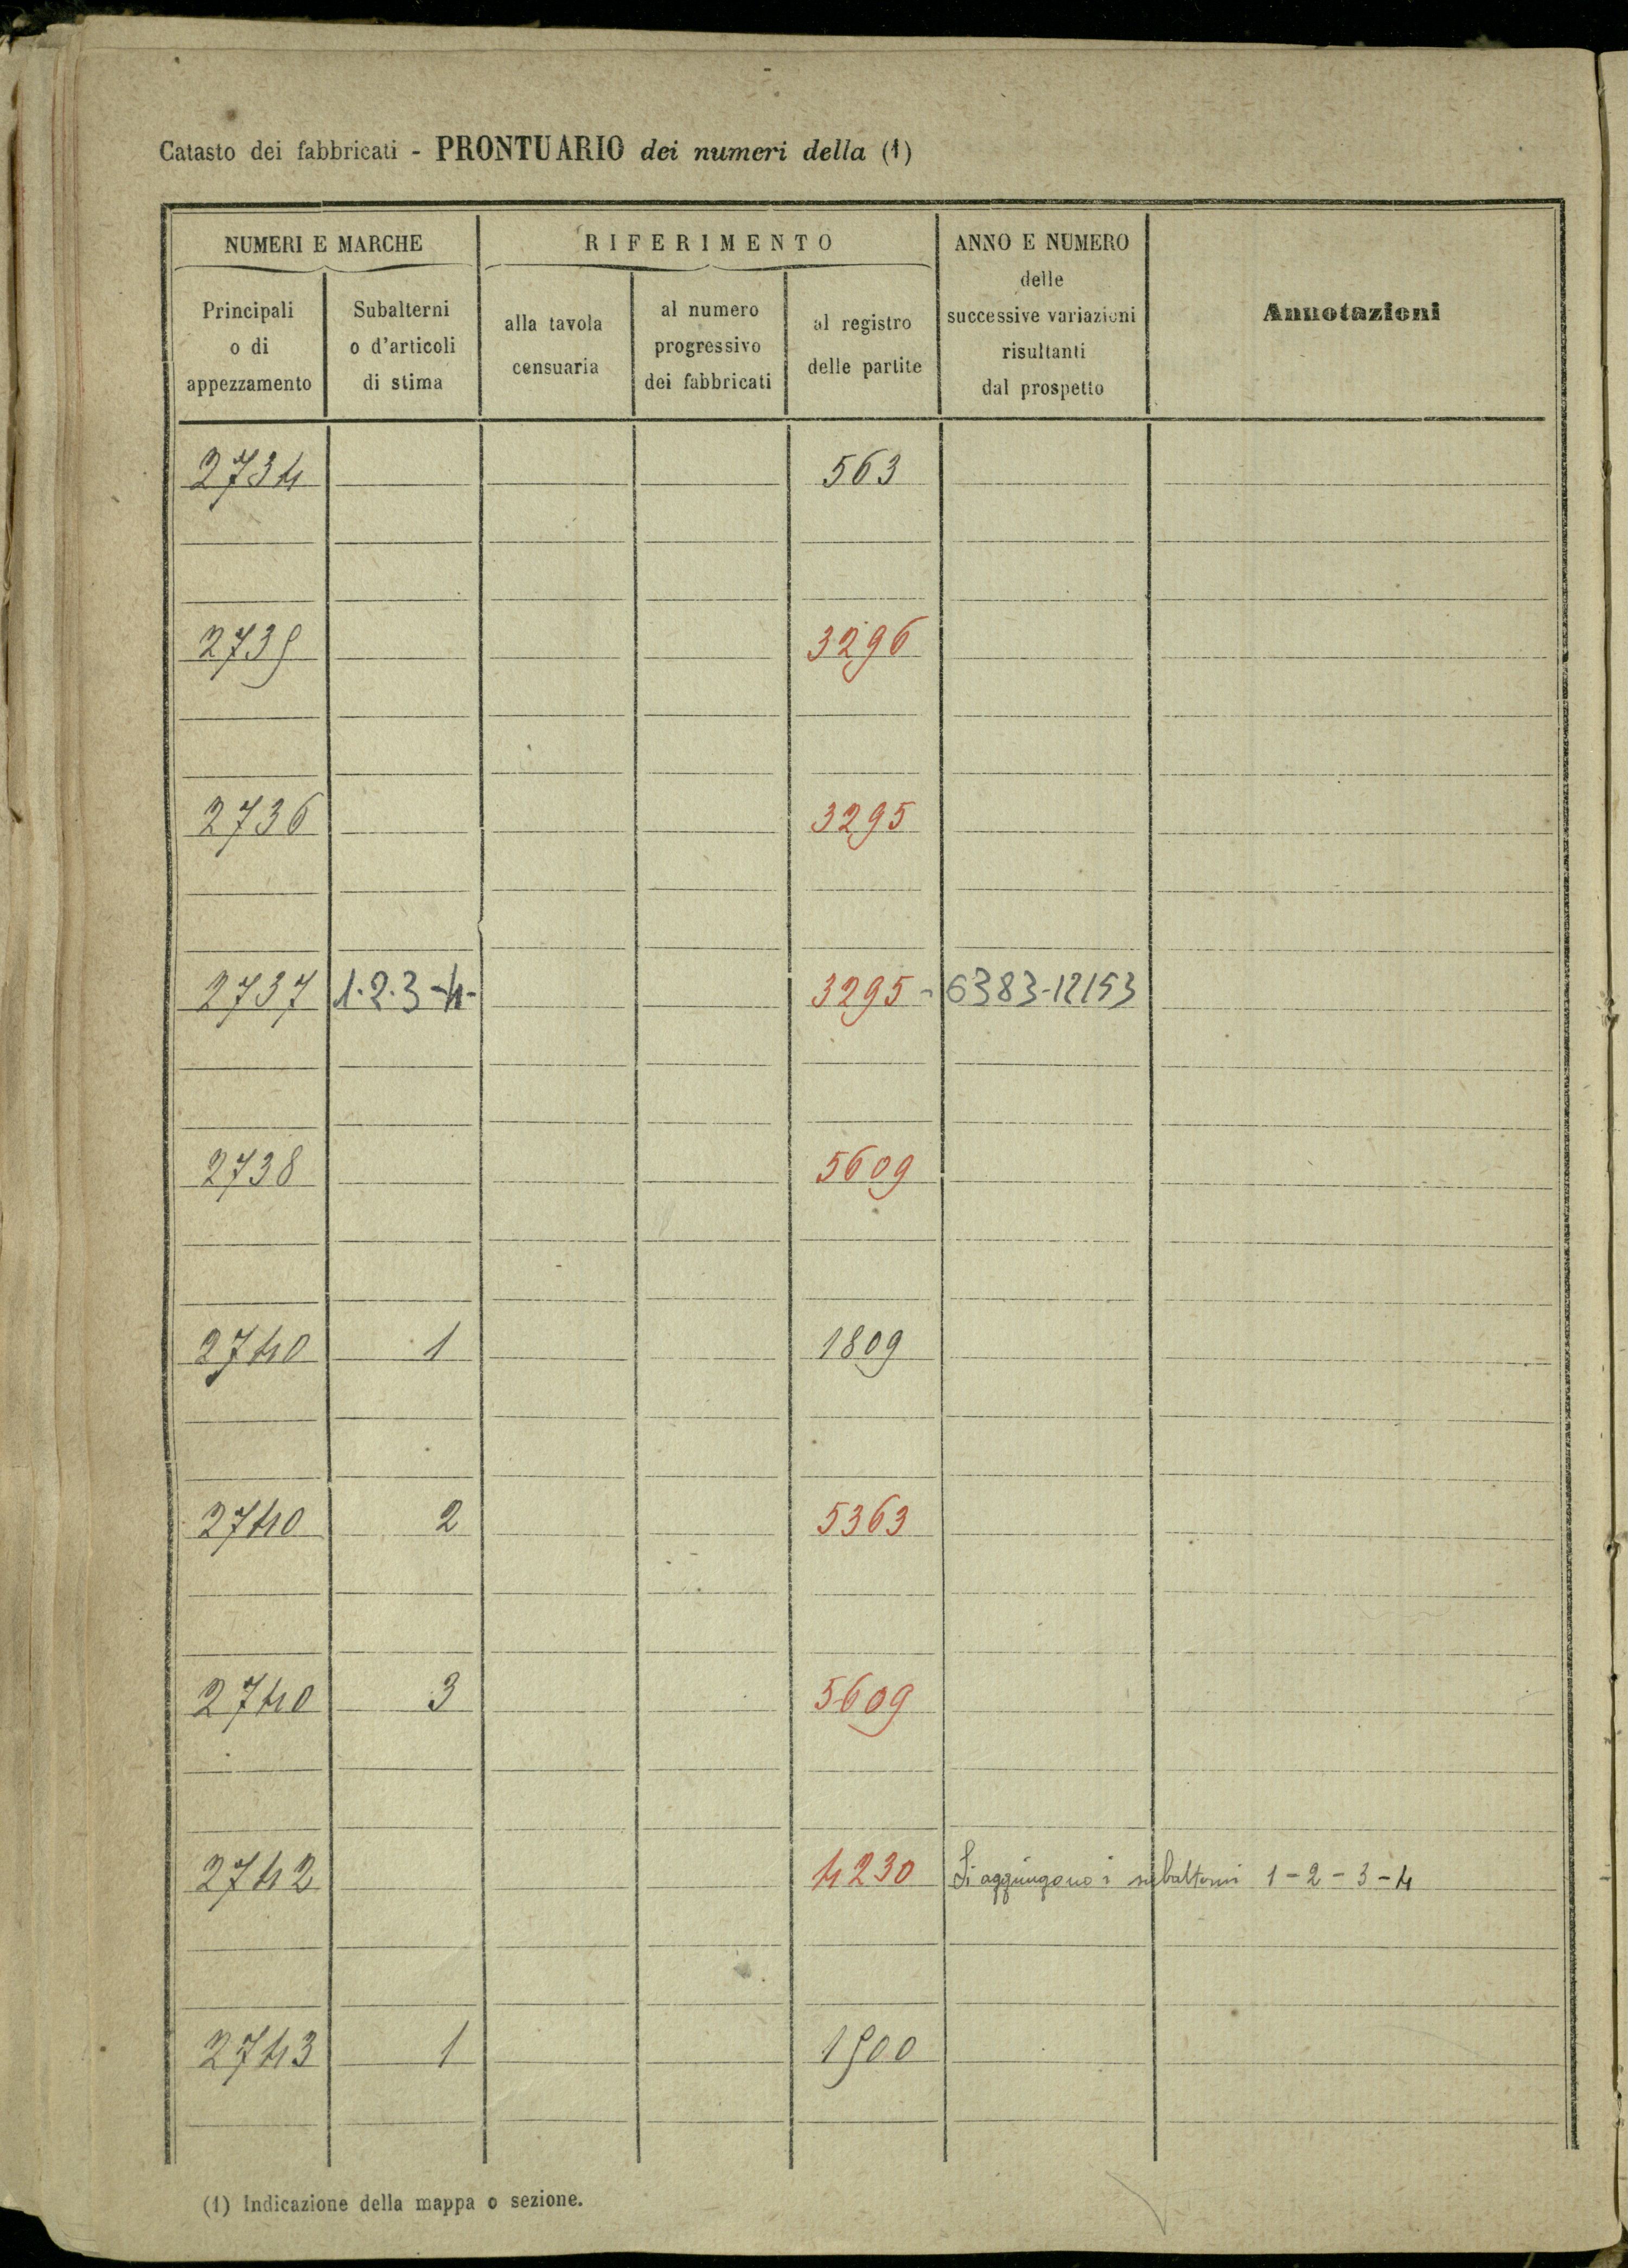 Catasto dei fabbricati - PRONTUARIO dei numeri della (1)
NUMERI E MARCHE
RIFERIMENTO
ANNO E NUMERO
delle
successive variazioni
risultanti
dal prospetto
Annotazioni
Principali
o di
appezzamento
Subalterni
o d'articoli
di stima
alla tavola
censuaria
al numero
progressivo
dei fabbricati
al registro
delle partite
2734 563
2735 3296
2736 3295
2737 1.2.3-4- 3295- 6383-12153
2738 5609
2740 1 1809
2740 2 5363
2740 3 5609
2742 4230 Si aggiungono i subalterni 1-2-3-4
2743 1 1500
(1) Indicazione della mappa o sezione.